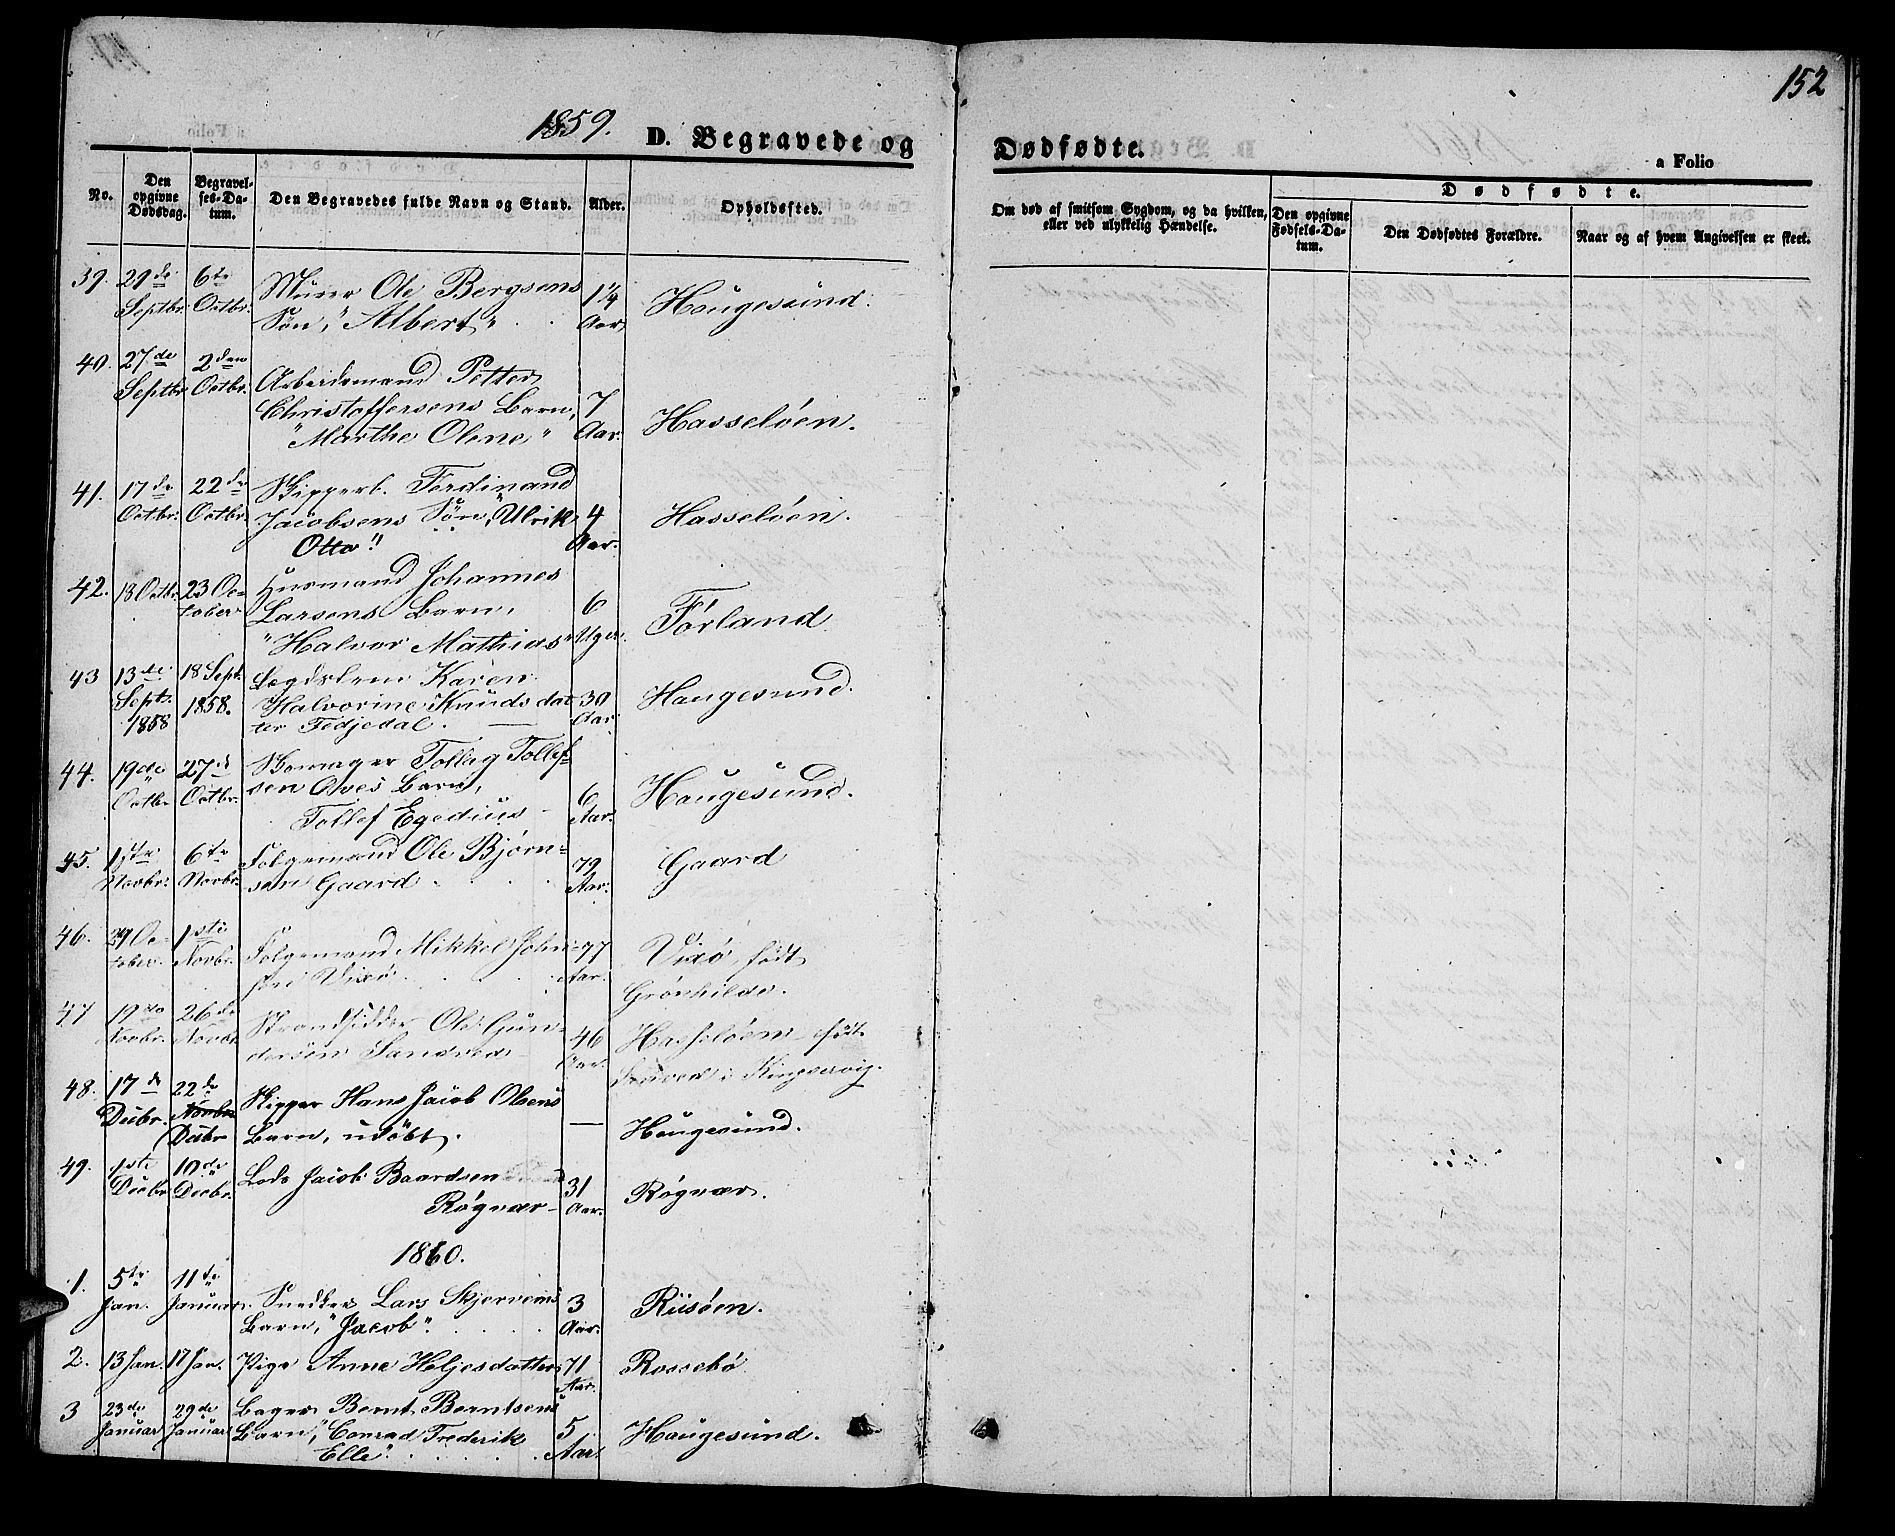 152
1859.
D. Begravede og Dødfødte.
a Folio
No.
Den opgivne Dødsdag.
Begravelses-Datum.
Den Begravedes fulde Navn og Stand.
Alder.
Opholdssted.
Om død af smitsom Sygdom, og da hvilken, eller ved ulykkelig Hændelse.
Dødfødte.
Den opgivne Fødsels-Datum.
Den Dødfødtes Forældre.
Naar og af hvem Angivelsen er skeet.
39. 29de 6te Murer Ole Bergsens 1¼ Haugesund.
Septbr. Octbr. Søn, "Albert" Aar
40. 27de 2den Arbeidsmand Petter
Septbr Octbr. Christoffersens Barn, 7 Hasseløen.
"Marthe Olene" Aar.
41. 17de 22de Skipperb. Ferdinand
Octbr. Octbr. Jacobsens Søn, "Ulrik 4 Hasseløen.
Otto" Aar.
42. 18 Octbr. 23 Oc- Huusmand Johannes
tober Larsens Barn, 6 Førland
"Halvor Mathias" Uger.
43 13de 18 Sept. Lægdslem Karen
Septr. 1858. Halvorine Knudsdat 30 Haugesund.
1858 ter Fedjedal. Aar
44. 19de 27de Skomager Tollag Tollef-
Octbr. Octbr. sen Aves Barn, 6 Haugesund.
Tollef Egedius Aar.
45. 1ste 6te Følgemand Ole Bjørn- 79 Gaard
Novbr. Novbr. sen Gaard. Aar.
46. 29 Oc- 1ste Følgemand Mikkel John- 77 Vixø født
tober. Novbr. sen Vixø. Aar. Grønhilde.
47 19de 26de Strandsidder Ole Gun- 46 Hasseløen født
Novbr. Novbr. dersen Sandved Aar. Sandved i Kingservig.
48. 17de 22de Skipper Hans Jacob Olsens
Decbr. Novbr. Barn, udøbt. — Haugesund.
Decbr
49. 1ste 10de Lods Jacob Baardsen 31 Røgvær.
Decbr Decbr. Røgvær Aar.
1860.
1. 5te 11te Snedker Lars Skjerveims 3 Riisøen.
Jan. Januar. Barn, "Jacob". Aar.
2. 13 Jan. 17 Jan. Pige Anne Heljesdatter 71 Rossebø
Aar.
3 23de 29de Bager Bernt Berntsens
Januar Januar Barn, "Conrad Frederik 5 Haugesund.
Elle". Aar.